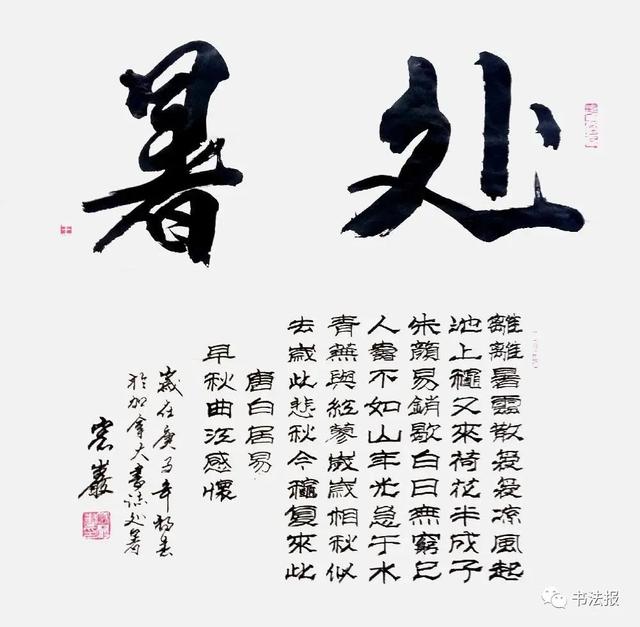 处暑
離離暑雲散裊裊凉風起
池上穐又來荷花半成子
朱顔易銷歇白日無窮已
人壽不如山年光急于水
青蕪與紅蓼歲歲相秋似
去歲此悲秋今穐复來此
唐白居易
早秋曲江感懷
歲在庚子年
於加拿大書 处暑
书法报